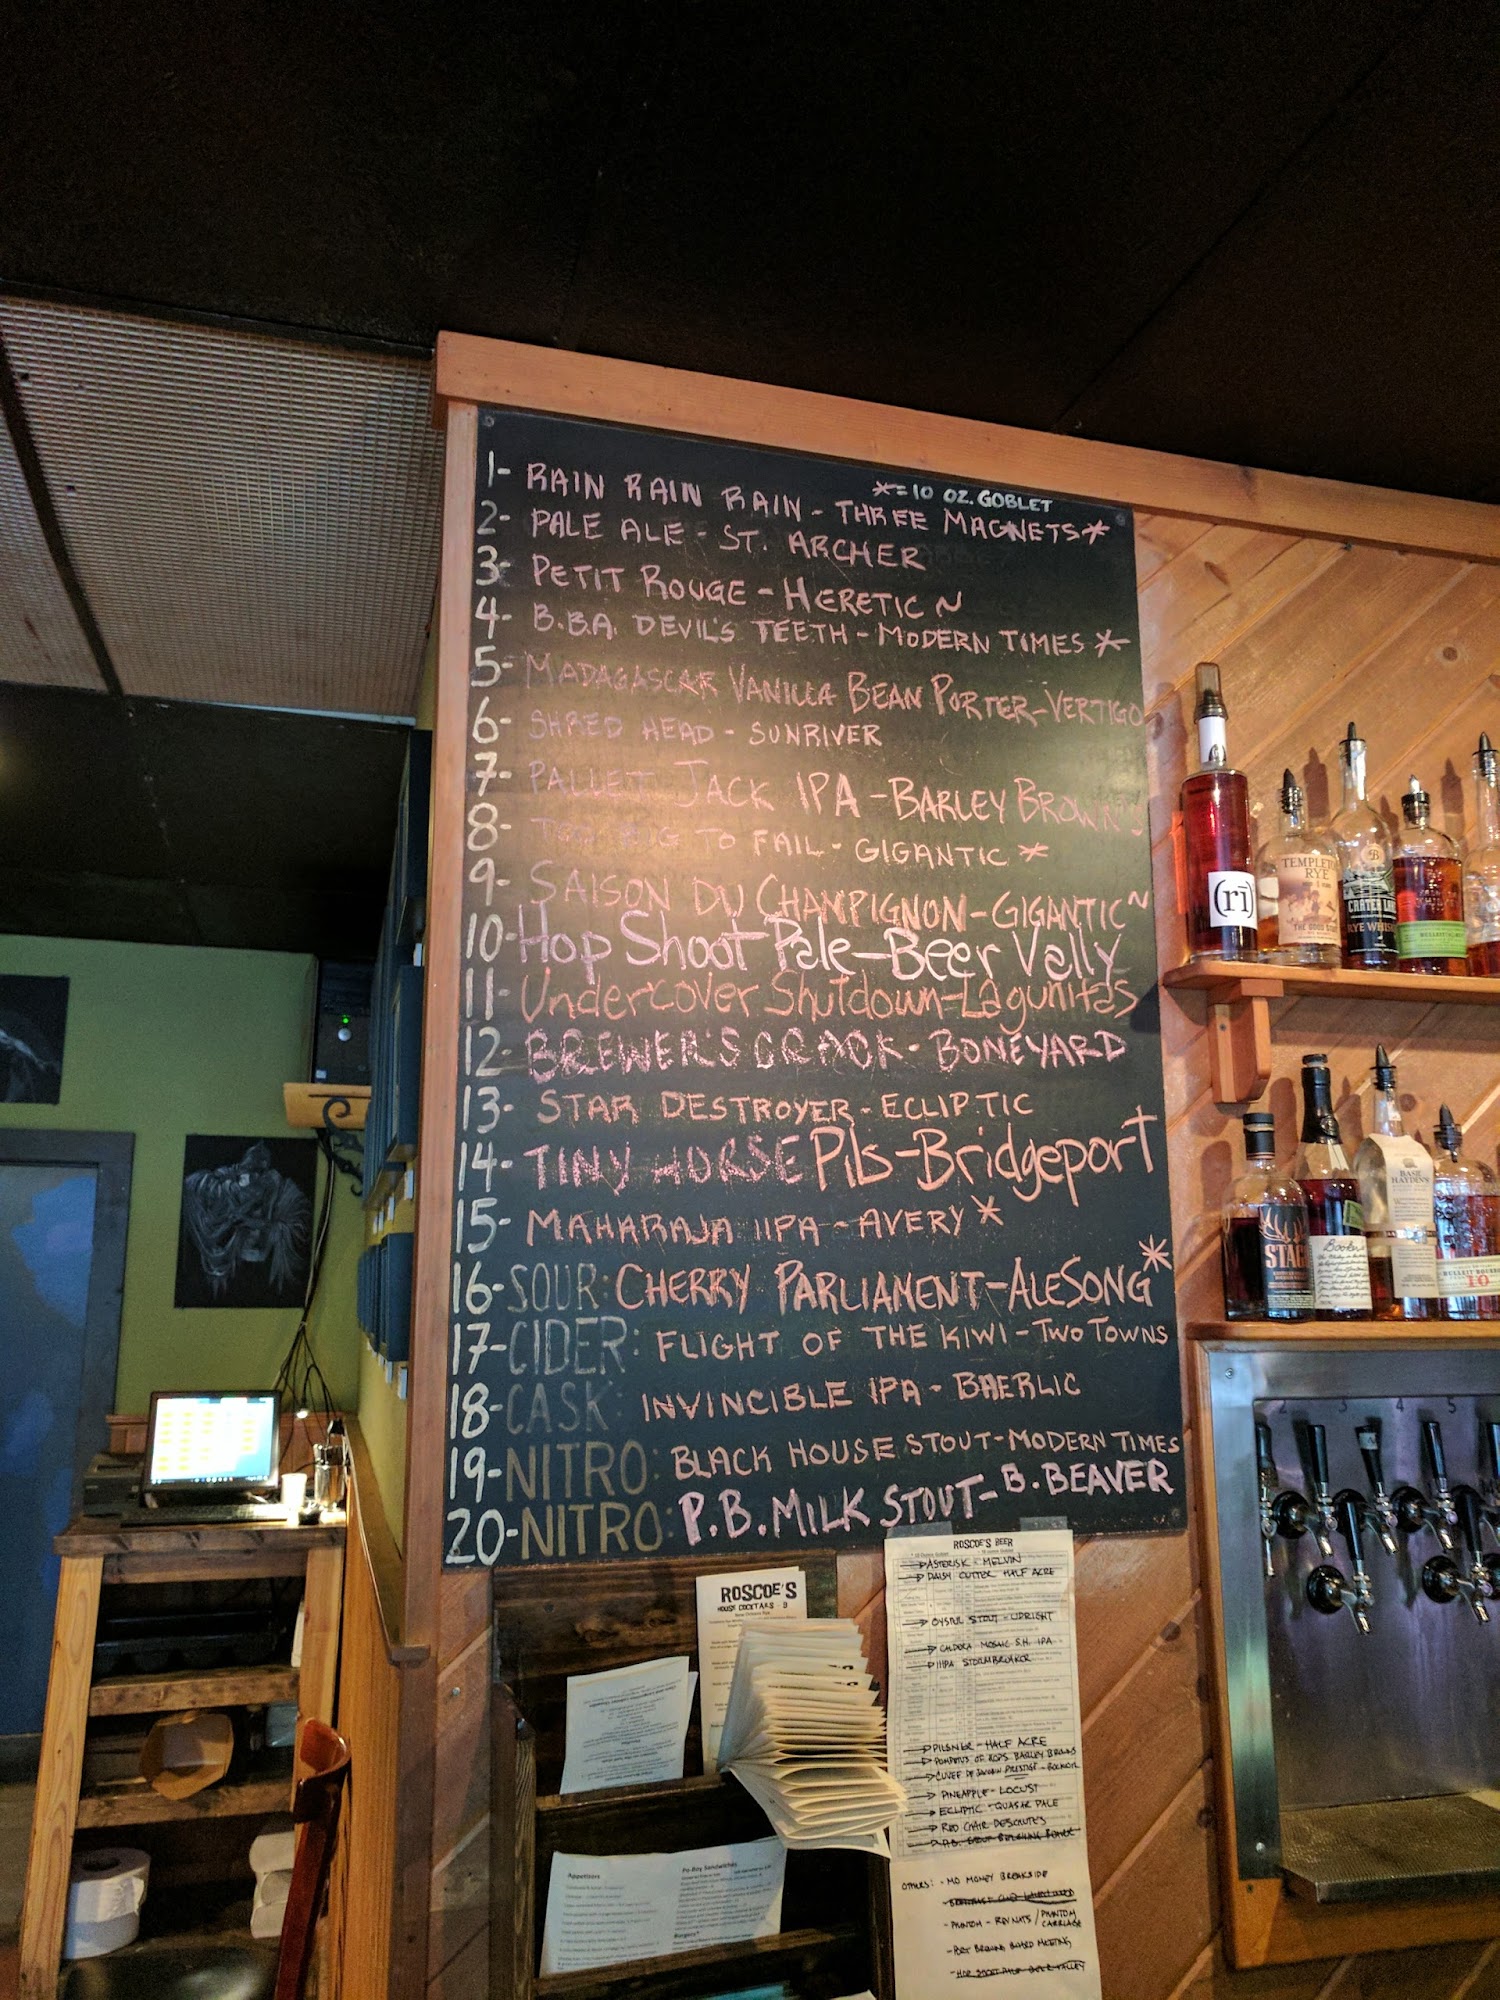 *=10 OZ. GOBLET
1- RAIN RAIN RAIN - THREE MAGNETS *
2- PALE ALE - ST. ARCHER
3- PETIT ROUGE - HERETIC ~
4- B.B.A. DEVIL'S TEETH - MODERN TIMES *
5- MADAGASCAR VANILLA BEAN PORTER - VERTIGO
6- SHRED HEAD - SUNRIVER
7- PALLET JACK IPA - BARLEY BROWN'S
8- TOO BIG TO FAIL - GIGANTIC *
9- SAISON DU CHAMPIGNON - GIGANTIC ~
10- Hop Shoot Pale - Beer Vally
11- Undercover Shutdown - Lagunitas
12- BREWER'S CRACK - BONEYARD
13- STAR DESTROYER - ECLIPTIC
14- TINY HORSE Pils - Bridgeport
15- MAHARAJA IIPA - AVERY *
16- SOUR: CHERRY PARLIAMENT - ALESONG *
17- CIDER: FLIGHT OF THE KIWI - TWO TOWNS
18- CASK: INVINCIBLE IPA - BAERLIC
19- NITRO: BLACK HOUSE STOUT - MODERN TIMES
20- NITRO: P.B. MILK STOUT - B. BEAVER
(rī)
TEMPLETON
RYE
THE GOOD STUFF
CRATER LAKE
RYE WHISKEY
BULLEIT
STAGG
Booker's
BASIL
HAYDEN'S
BULLEIT BOURBON
10
2 3 4 5
ROSCOE'S
HOUSE COCKTAILS
ROSCOE'S BEER
ASTERISK - MELVIN
DAISY CUTTER HALF ACRE
OYSTER STOUT - UPRIGHT
CALDERA MOSAIC S.H. IPA
IIIPA STORMBREAKER
PILSNER - HALF ACRE
POMPETUS OF HOPS BARLEY BROWNS
CUVEE DE JACOBIN PRESTIGE - BOCKOR
PINEAPPLE - LOCUST
ECLIPTIC - QUASAR PALE
RED CHAIR DESCHUTES
OTHERS: - MO MONEY BREAKSIDE
- PHANTOM - REVNATS / PHANTOM CARRIAGE
- PORT BREWING BOARD MEETING
- HOP SHOOT PALE BEER VALLEY
Appetizers
Po-Boy Sandwiches
Burgers*